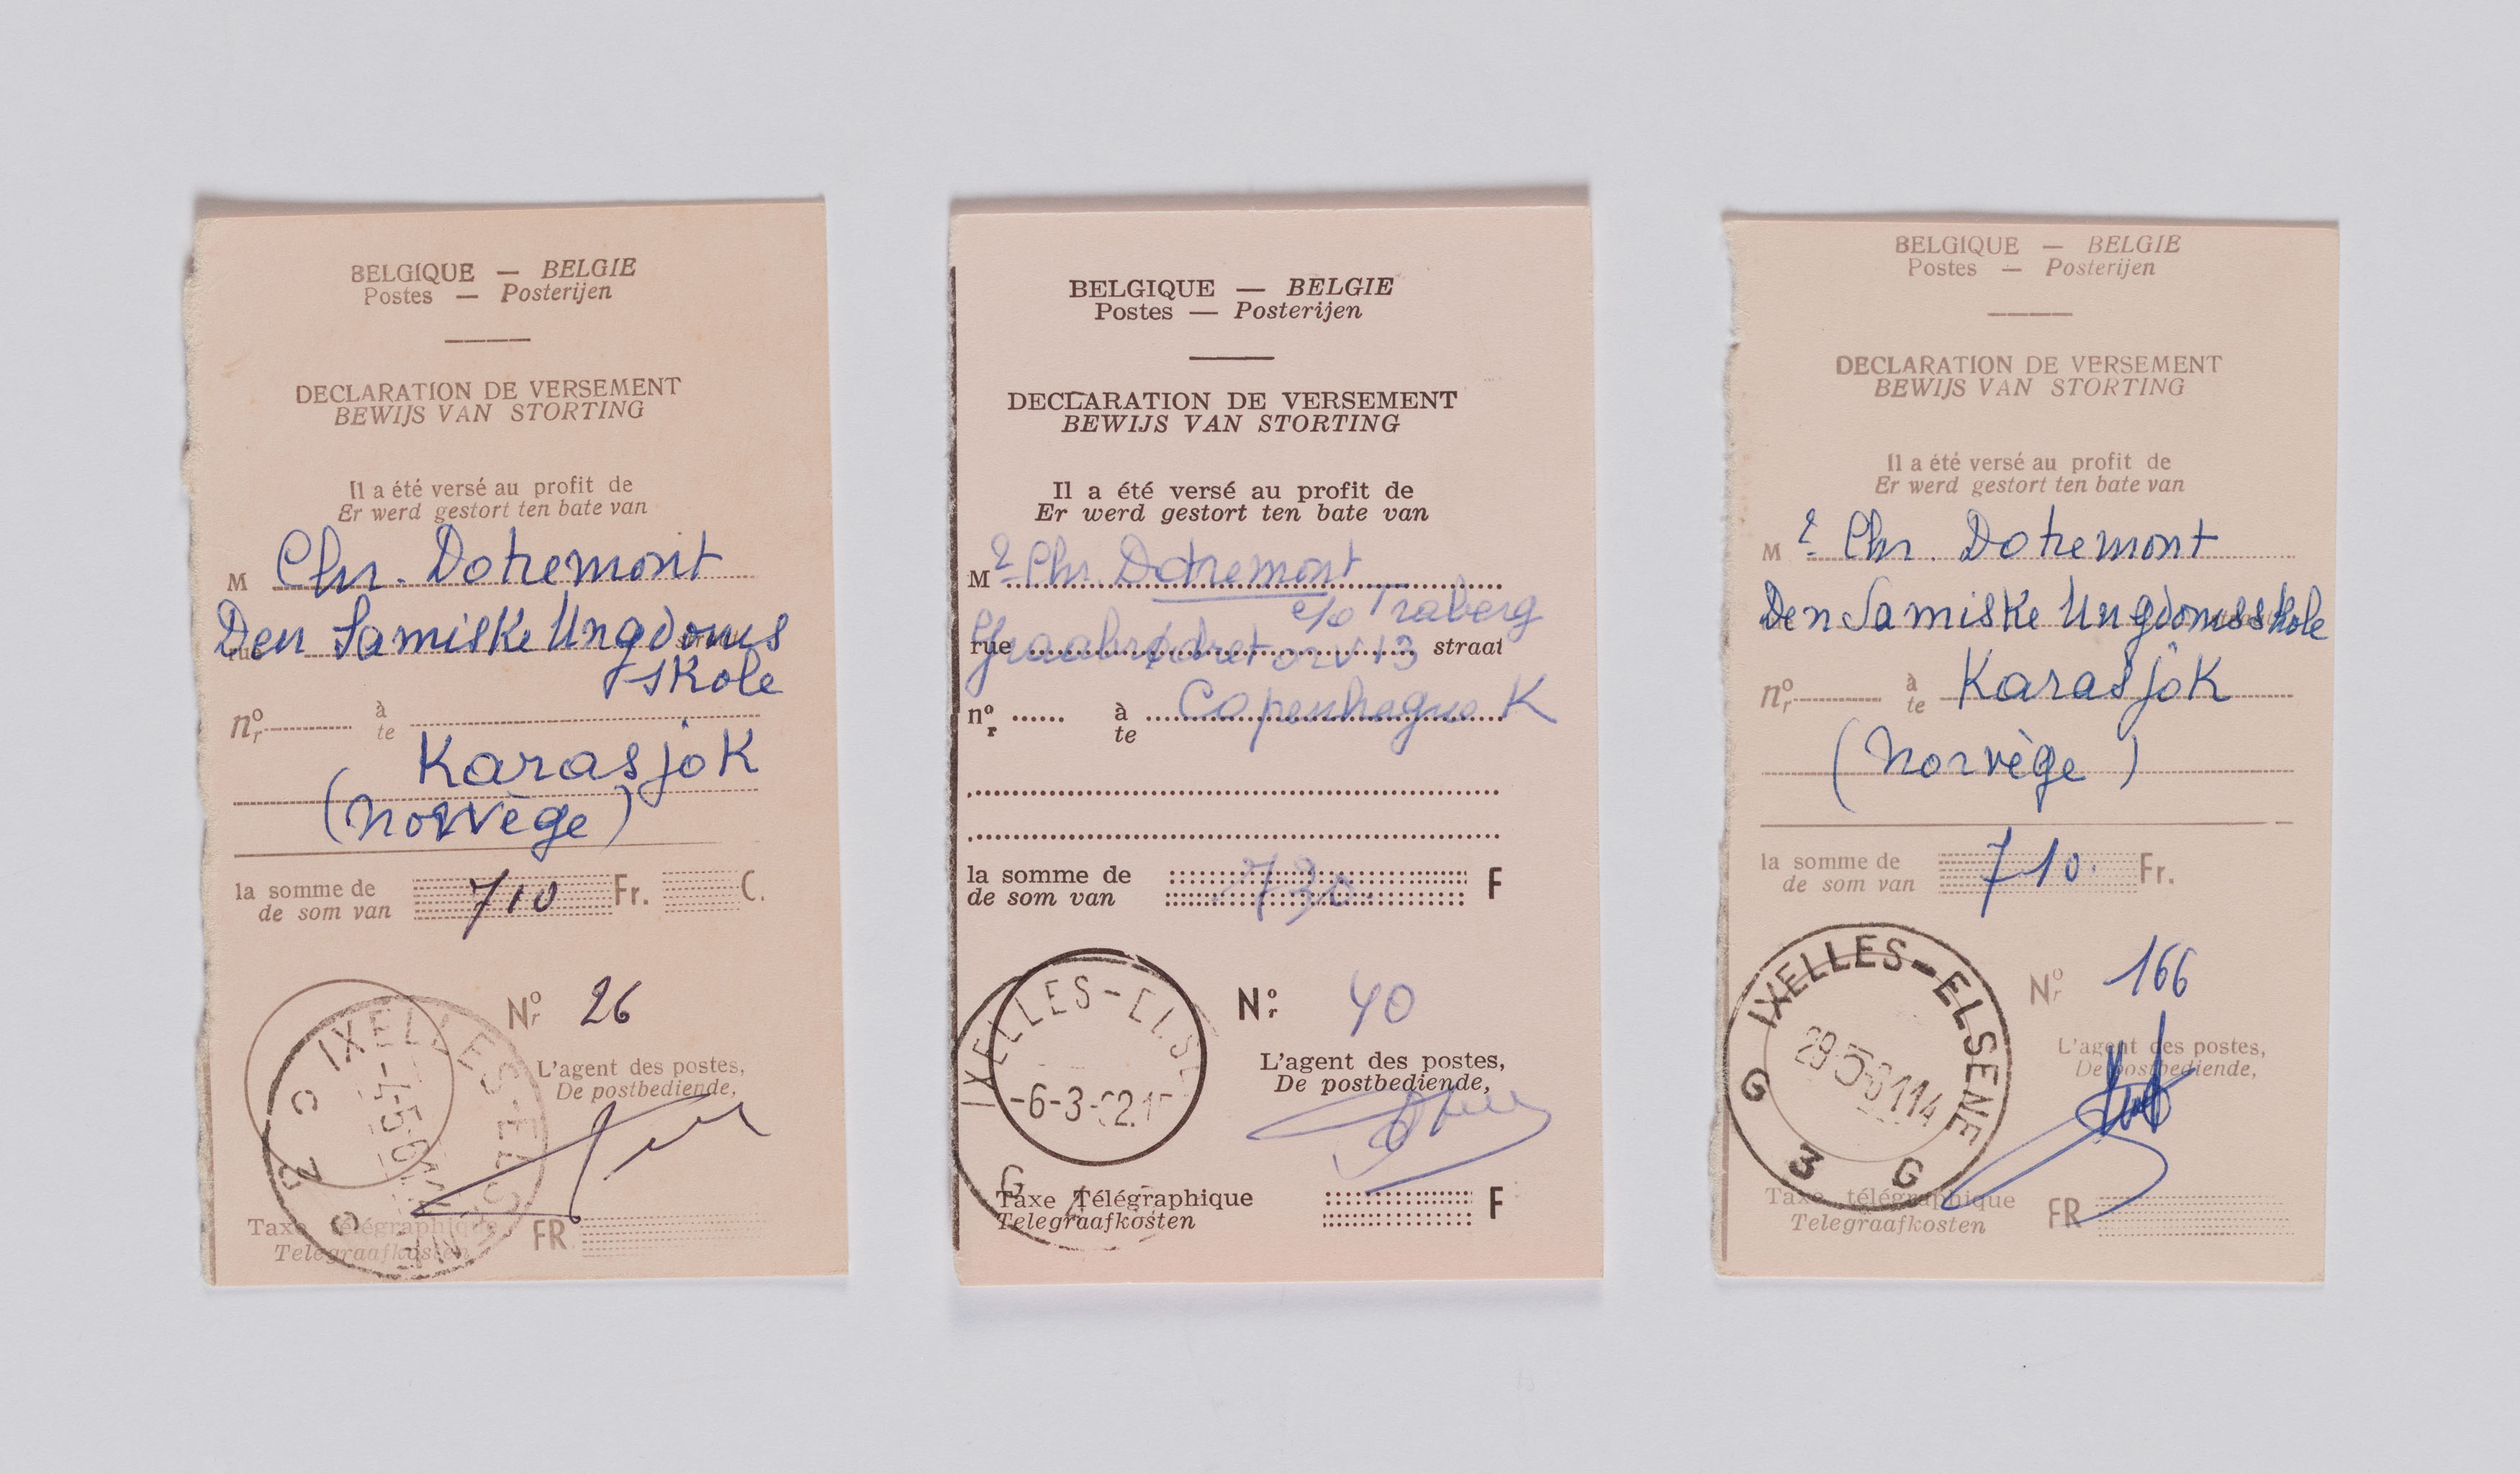 BELGIQUE — BELGIE
Postes — Posterijen
DECLARATION DE VERSEMENT
BEWIJS VAN STORTING
Il a été versé au profit de
Er werd gestort ten bate van
M Chr. Dotremont
rue Den Samiske Ungdoms
skole
nº r à
te
Karasjok
(Norvège)
la somme de 710 Fr. C.
de som van
Nº r 26
L'agent des postes,
De postbediende,
IXELLES-ELSENE
C 3 C
Taxe télégraphique FR
Telegraafkosten
BELGIQUE — BELGIE
Postes — Posterijen
DECLARATION DE VERSEMENT
BEWIJS VAN STORTING
Il a été versé au profit de
Er werd gestort ten bate van
Mr Chr. Dotremont
c/o Traberg
rue straat
nº r à Copenhague K
te
la somme de 730. F
de som van
Nº r 40
L'agent des postes,
De postbediende,
IXELLES-ELSE
-6-3-
G
Taxe Télégraphique F
Telegraafkosten
BELGIQUE — BELGIE
Postes — Posterijen
DECLARATION DE VERSEMENT
BEWIJS VAN STORTING
Il a été versé au profit de
Er werd gestort ten bate van
Mr Chr. Dotremont
Den Samiske Ungdomsskole
nº r à Karasjok
te
(Norvège)
la somme de 710. Fr.
de som van
Nº r 166
L'agent des postes,
De postbediende,
IXELLES-ELSENE
29-5-6114
G 3 G
Taxe télégraphique FR
Telegraafkosten